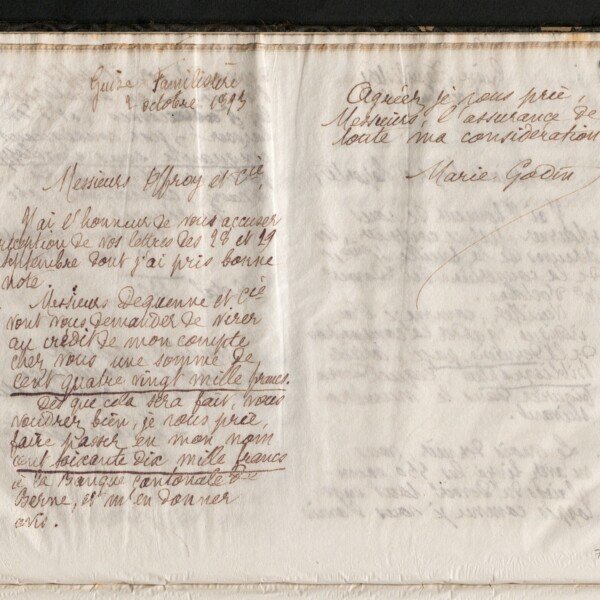 Guise Familistère
2 octobre 1893
Messieurs Offroy et Cie,
J'ai l'honneur de vous accuser
réception de vos lettres des 28 et 29
septembre dont j'ai pris bonne
note.
Messieurs Dequenne et Cie
vont vous demander de virer
au crédit de mon compte
chez vous une somme de
cent quatre vingt mille francs.
Dès que cela sera fait, vous
voudrez bien, je vous prie,
faire passer en mon nom
cent soixante dix mille francs
à la Banque cantonale de
Berne, et m'en donner
avis.
Agréer, je vous prie,
Messieurs, l'assurance de
toute ma considération
Marie Godin